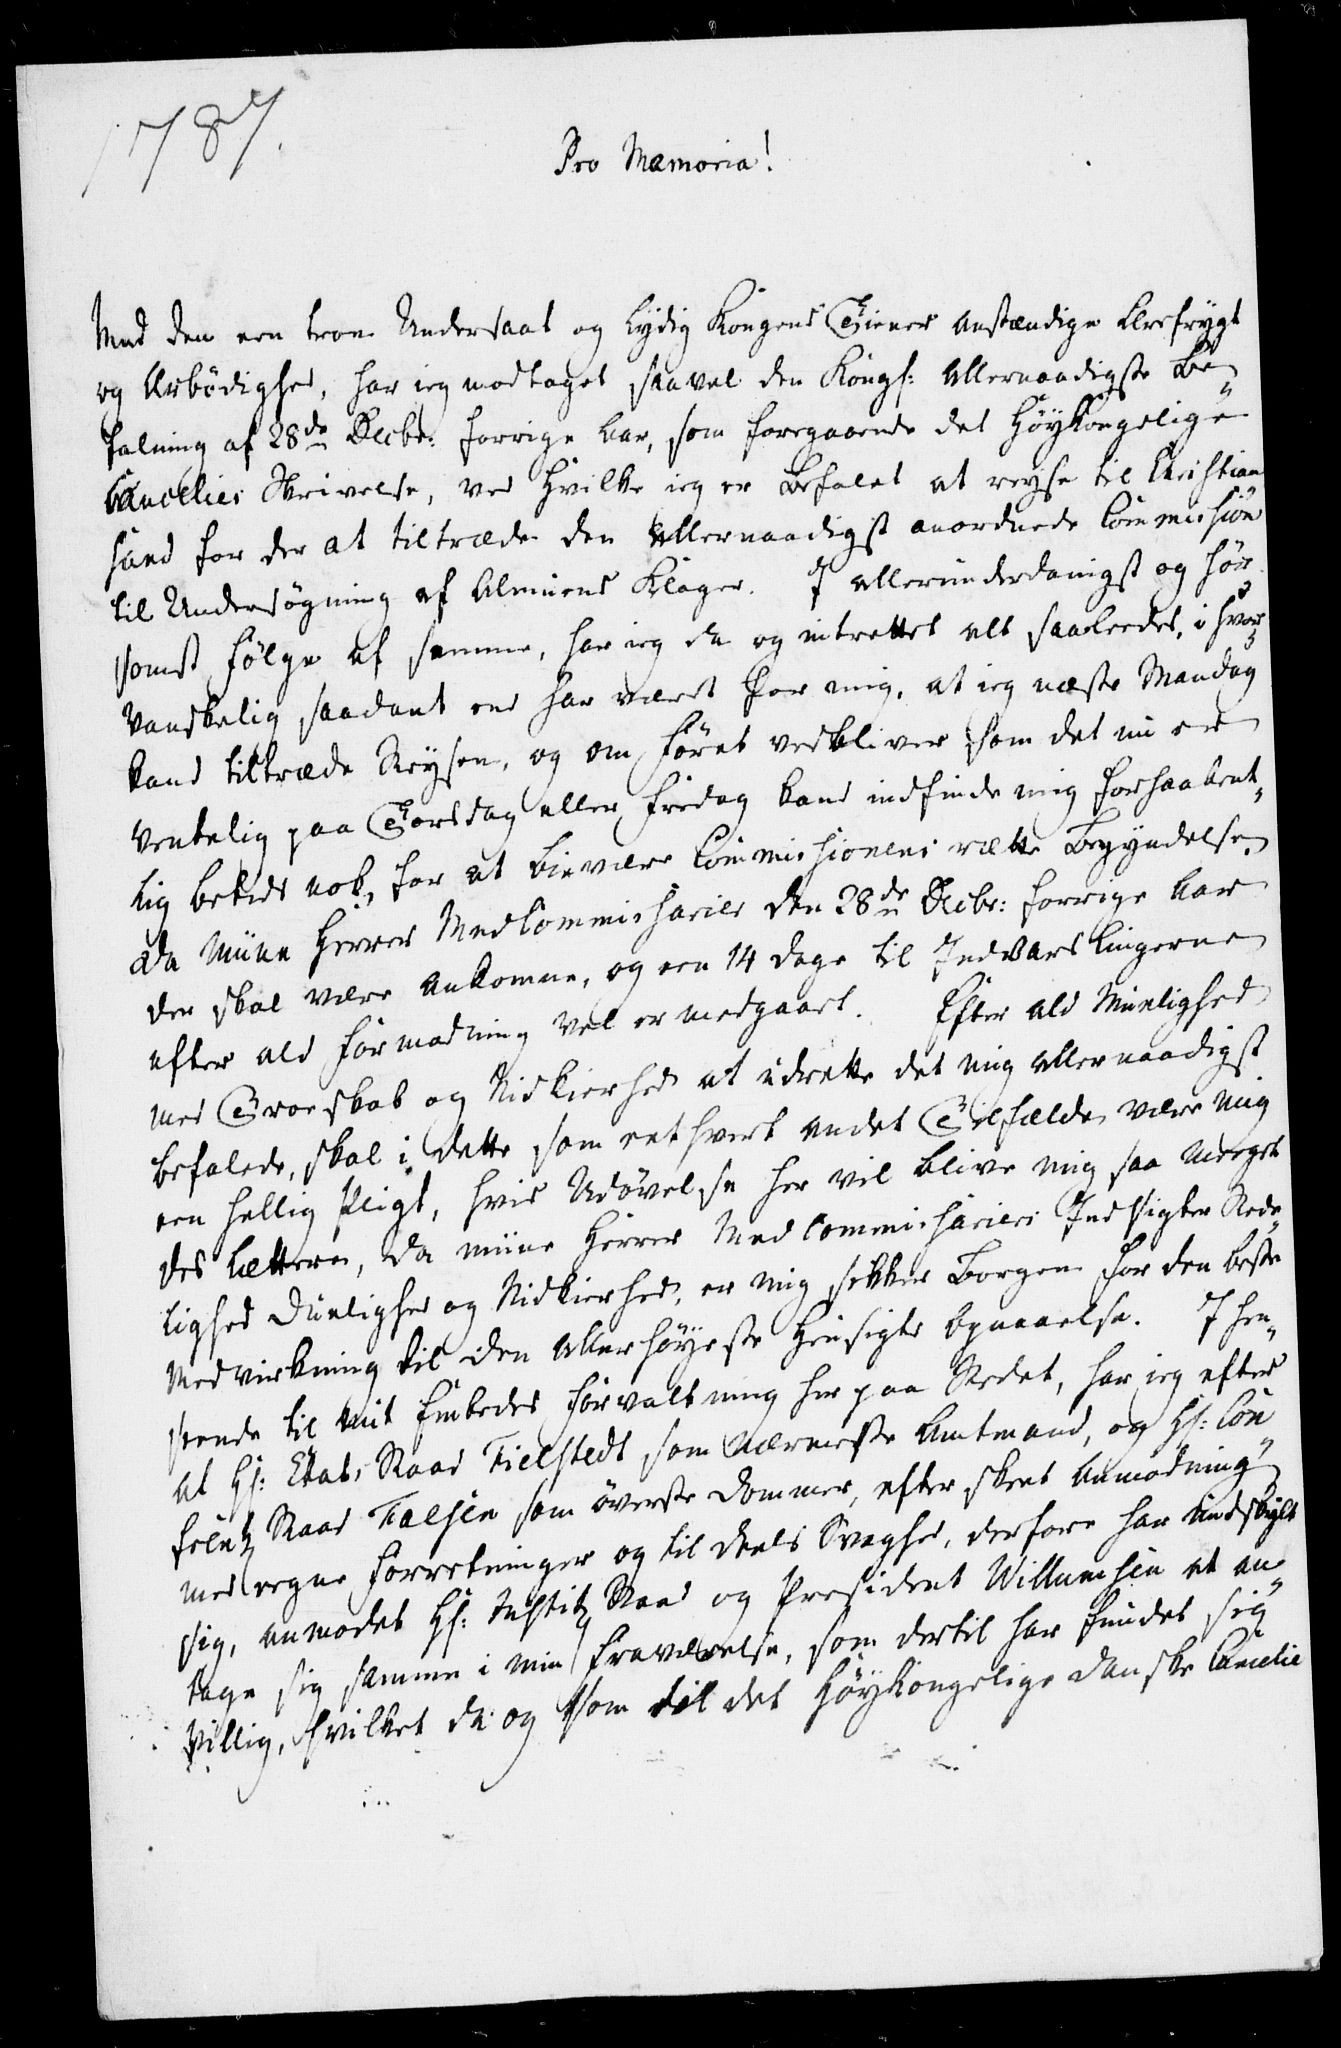 1787.
Pro Memoria!
Med den een troe Undersaat og Lydig Kongens Tiener anstændige Ærefrygt
og Ærbödighed, har ieg modtaget saavel den Kongl: Allernaadigste Be„
falning af 28de Decbr: forrige Aar, som foregaaende det HöyKongelige
Cancelies Skrivelse, ved Hvilke ieg er befalet at reyse til Christian
sand for der at tiltræde den allernaadigst anordnede Commission
til Undersögning af Almuens Klager. I allerunderdanigst og hör„
somst fölge af samme, har ieg da og indrettet alt saaledes, i hvor
vanskelig saadant end har været for mig, at ieg næste Mandag
kand tiltræde Reysen, og om föret vedbliver som det nu er
ventelig paa Torsdag eller Fredag kand indfinde mig forhaabent„
lig betids nok, for at bievære Commissionens rette Begyndelse,
da Miine Herrer MedCommissarier den 28de Decbr: forrige Aar
der skal være ankomne, og een 14 dage til Indvarslingerne
efter ald formodning vel er medgaaet. Efter ald Muelighed
med Troeskab og Nidkierhed at udrette det mig allernaadigst
befalede, skal i dette som eet hvert andet Tilfælde være mig
een hellig Pligt, hvis Udövelse her vil blive mig saa meeget
des lættere, da miine Herrer Med Commissariers Indsigter Rede„
lighed Duelighed og Nidkierhed, er mig sikker Borgen for den beste
Medvirkning til den allerhöyeste Hensigts Opnaaelse. I hen„
seende til mit Embedes forvaltning her paa Stedet, har ieg efter
at Hr: Etats Raad Fieldstedt som nærmeste Amtmand, og Hr: Con„
ferentz Raad Falsen som överste dommer, efter skeet anmodning
med egne forretninger og til deels Svaghed, derfore har undskyldt
sig, anmodet Hr: Justitz Raad og President Willumsen at an„
tage sig samme i min fraværelse, som dertil har fundet sig
Villig, hvilket da og som til det HöyKongelige danske Cancelie